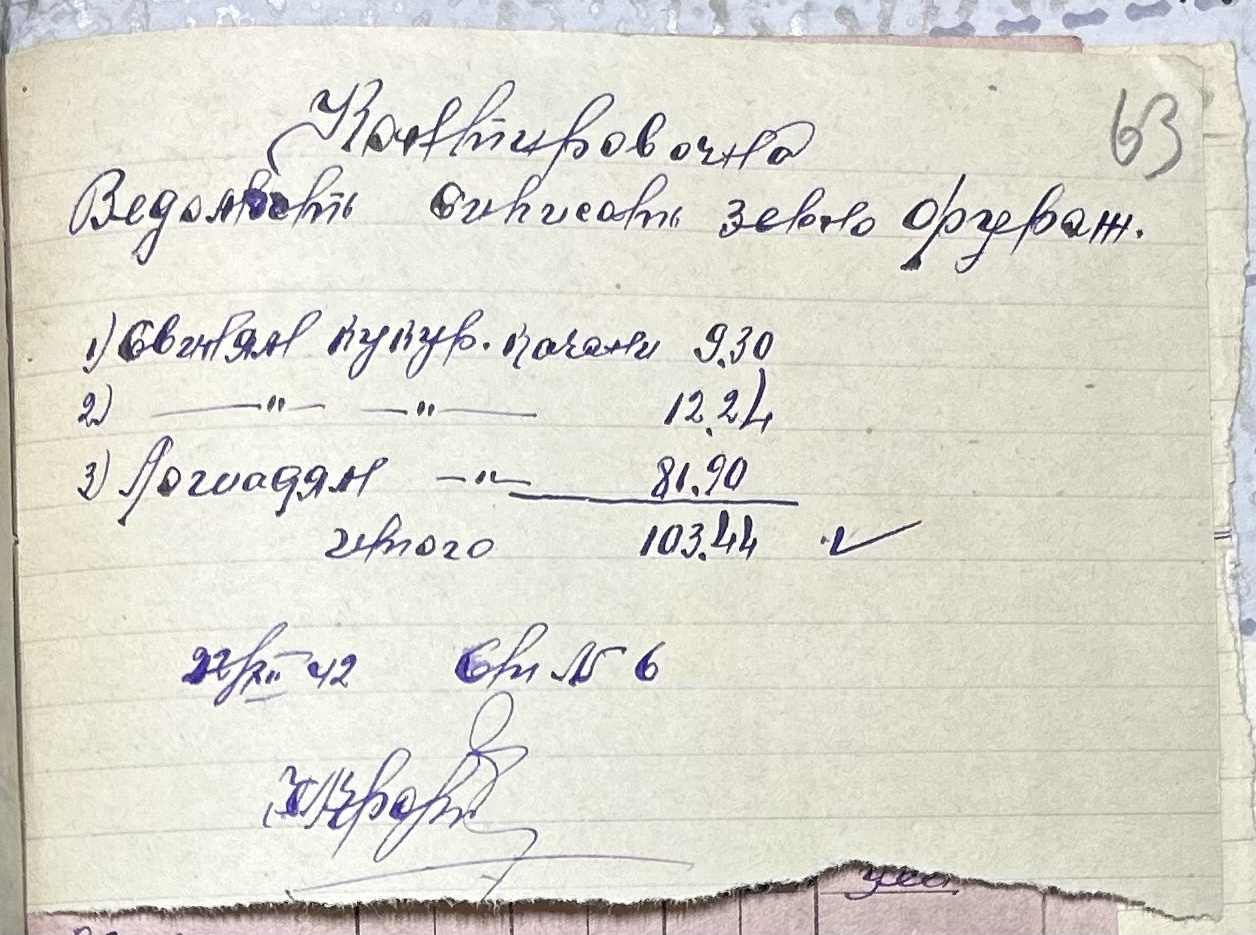 63
Контировочна
Ведомость списать зерно фураж.
1) Свиням кукур. качани 9.30
2) —"— —"— 12.24
3) Лошадям —"— 81.90
итого 103.44 ✓
XII 42 № 6